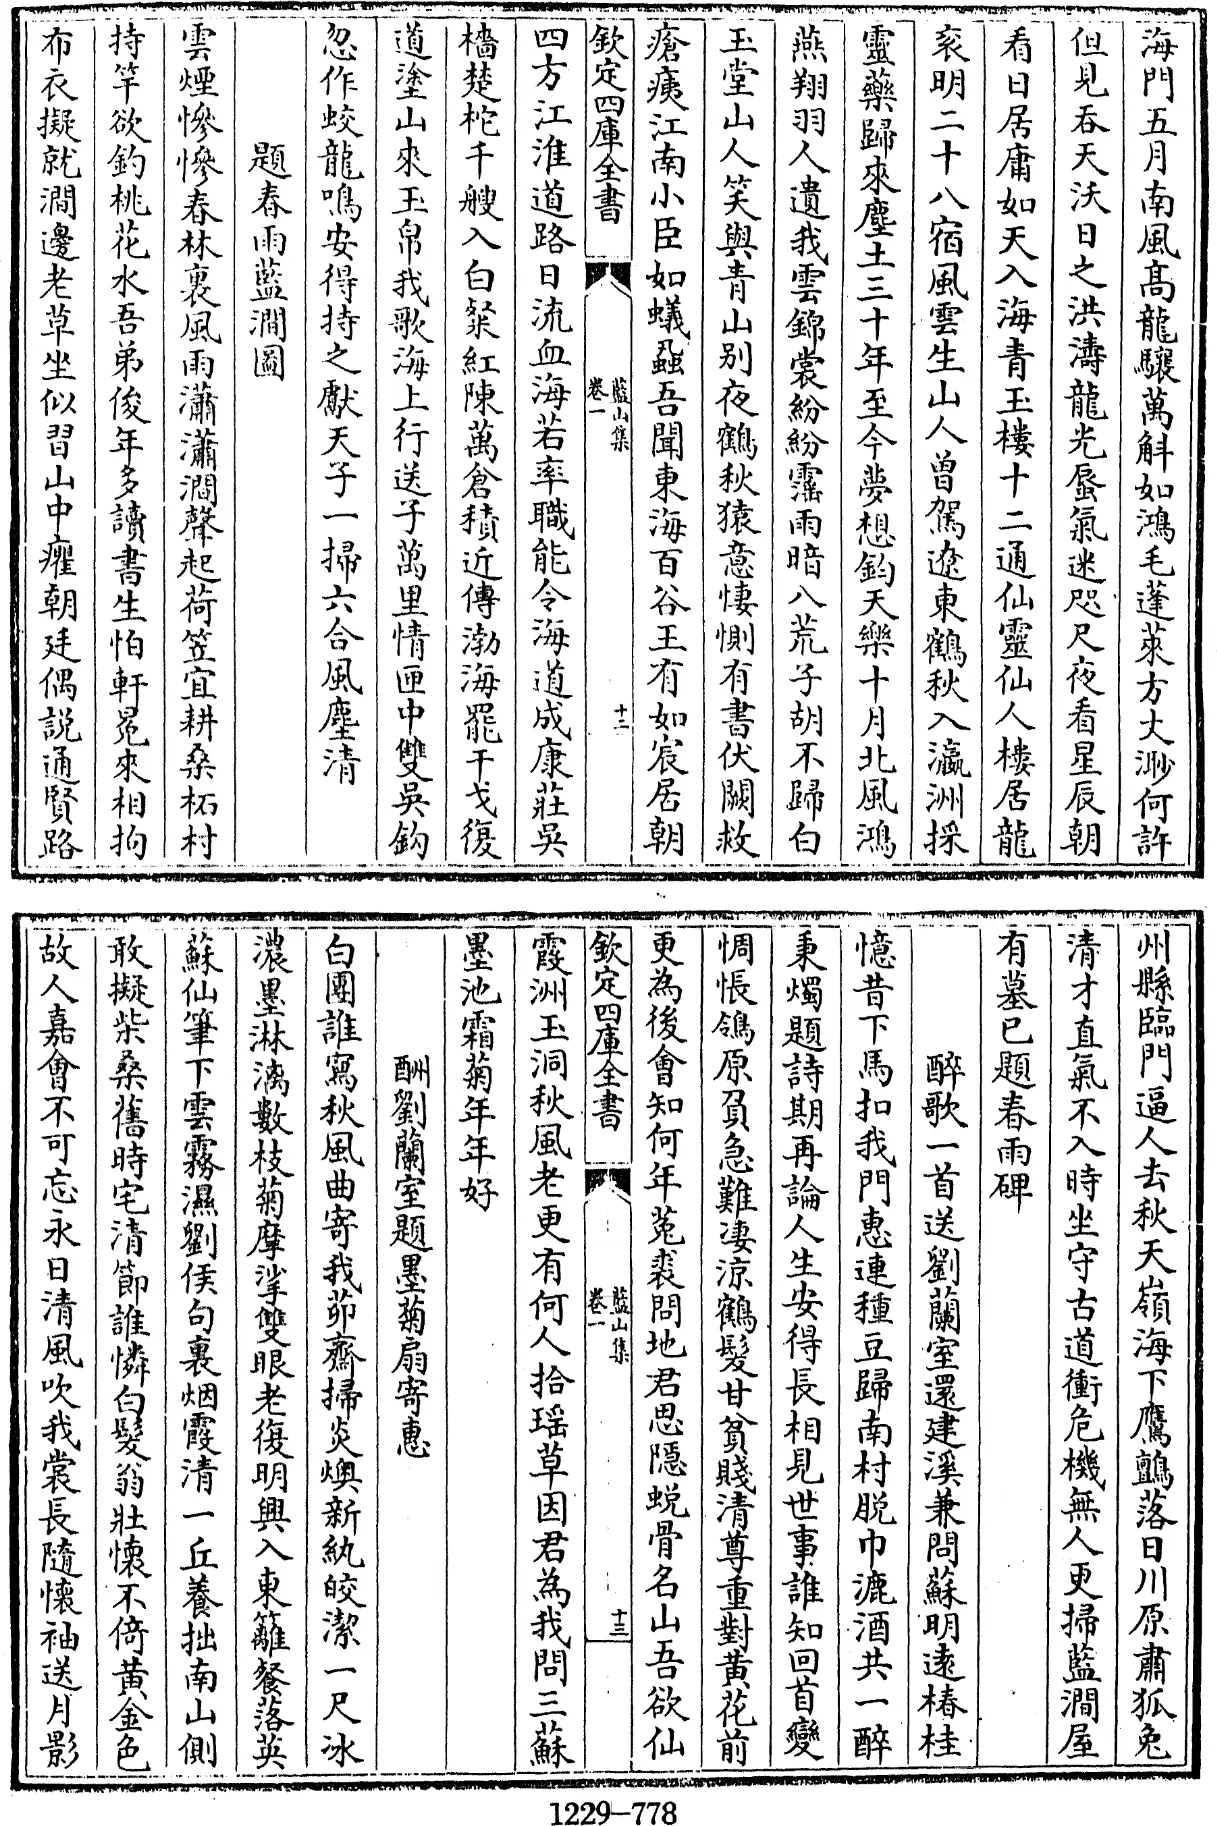 海門五月南風高龍驤萬斛如鴻毛蓬萊方丈渺何許
但見吞天沃日之洪濤龍光蜃氣迷咫尺夜看星辰朝
看日居庸如天入海青玉樓十二通仙靈仙人樓居龍
衮明二十八宿風雲生山人曾駕遼東鶴秋入瀛洲採
靈藥歸來塵土三十年至今夢想鈞天樂十月北風鴻
燕翔羽人遺我雲錦裳紛紛霪雨暗八荒子胡不歸白
玉堂山人笑與青山别夜鶴秋猿意悽惻有書伏闕救
瘡痍江南小臣如蟻蝨吾聞東海百谷王有如宸居朝
欽定四庫全書
藍山集
卷一
十二
四方江淮道路日流血海若率職能令海道成康莊吳
檣楚柁千艘入白粲紅陳萬倉積近傳渤海罷干戈復
道塗山來玉帛我歌海上行送子萬里情匣中雙吳鈎
忽作蛟龍鳴安得持之獻天子一掃六合風塵清
題春雨藍澗圖
雲煙慘慘春林裏風雨瀟瀟澗聲起荷笠宜耕桑柘村
持竿欲釣桃花水吾弟俊年多讀書生怕軒冕來相拘
布衣擬就澗邊老草坐似習山中癯朝廷偶説通賢路
州縣臨門逼人去秋天嶺海下鷹鸇落日川原肅狐兎
清才直氣不入時坐守古道衝危機無人更掃藍澗屋
有墓已題春雨碑
醉歌一首送劉蘭室還建溪兼問蘇明遠椿桂
憶昔下馬扣我門惠連種豆歸南村脱巾漉酒共一醉
秉燭題詩期再論人生安得長相見世事誰知回首變
惆悵鴒原負急難凄涼鶴髮甘貧賤清尊重對黄花前
更為後會知何年菟裘問地君思隠蜕骨名山吾欲仙
欽定四庫全書
藍山集
卷一
十三
霞洲玉洞秋風老更有何人拾瑶草因君為我問三蘇
墨池霜菊年年好
酬劉蘭室題墨菊扇寄惠
白團誰寫秋風曲寄我茆齋掃炎燠新紈皎潔一尺冰
濃墨淋漓數枝菊摩挲雙眼老復明興入東籬餐落英
蘇仙筆下雲霧濕劉侯句裏烟霞清一丘養拙南山側
敢擬柴桑舊時宅清節誰憐白髮翁壯懷不倚黄金色
故人嘉會不可忘永日清風吹我裳長隨懷袖送月影
1229-778